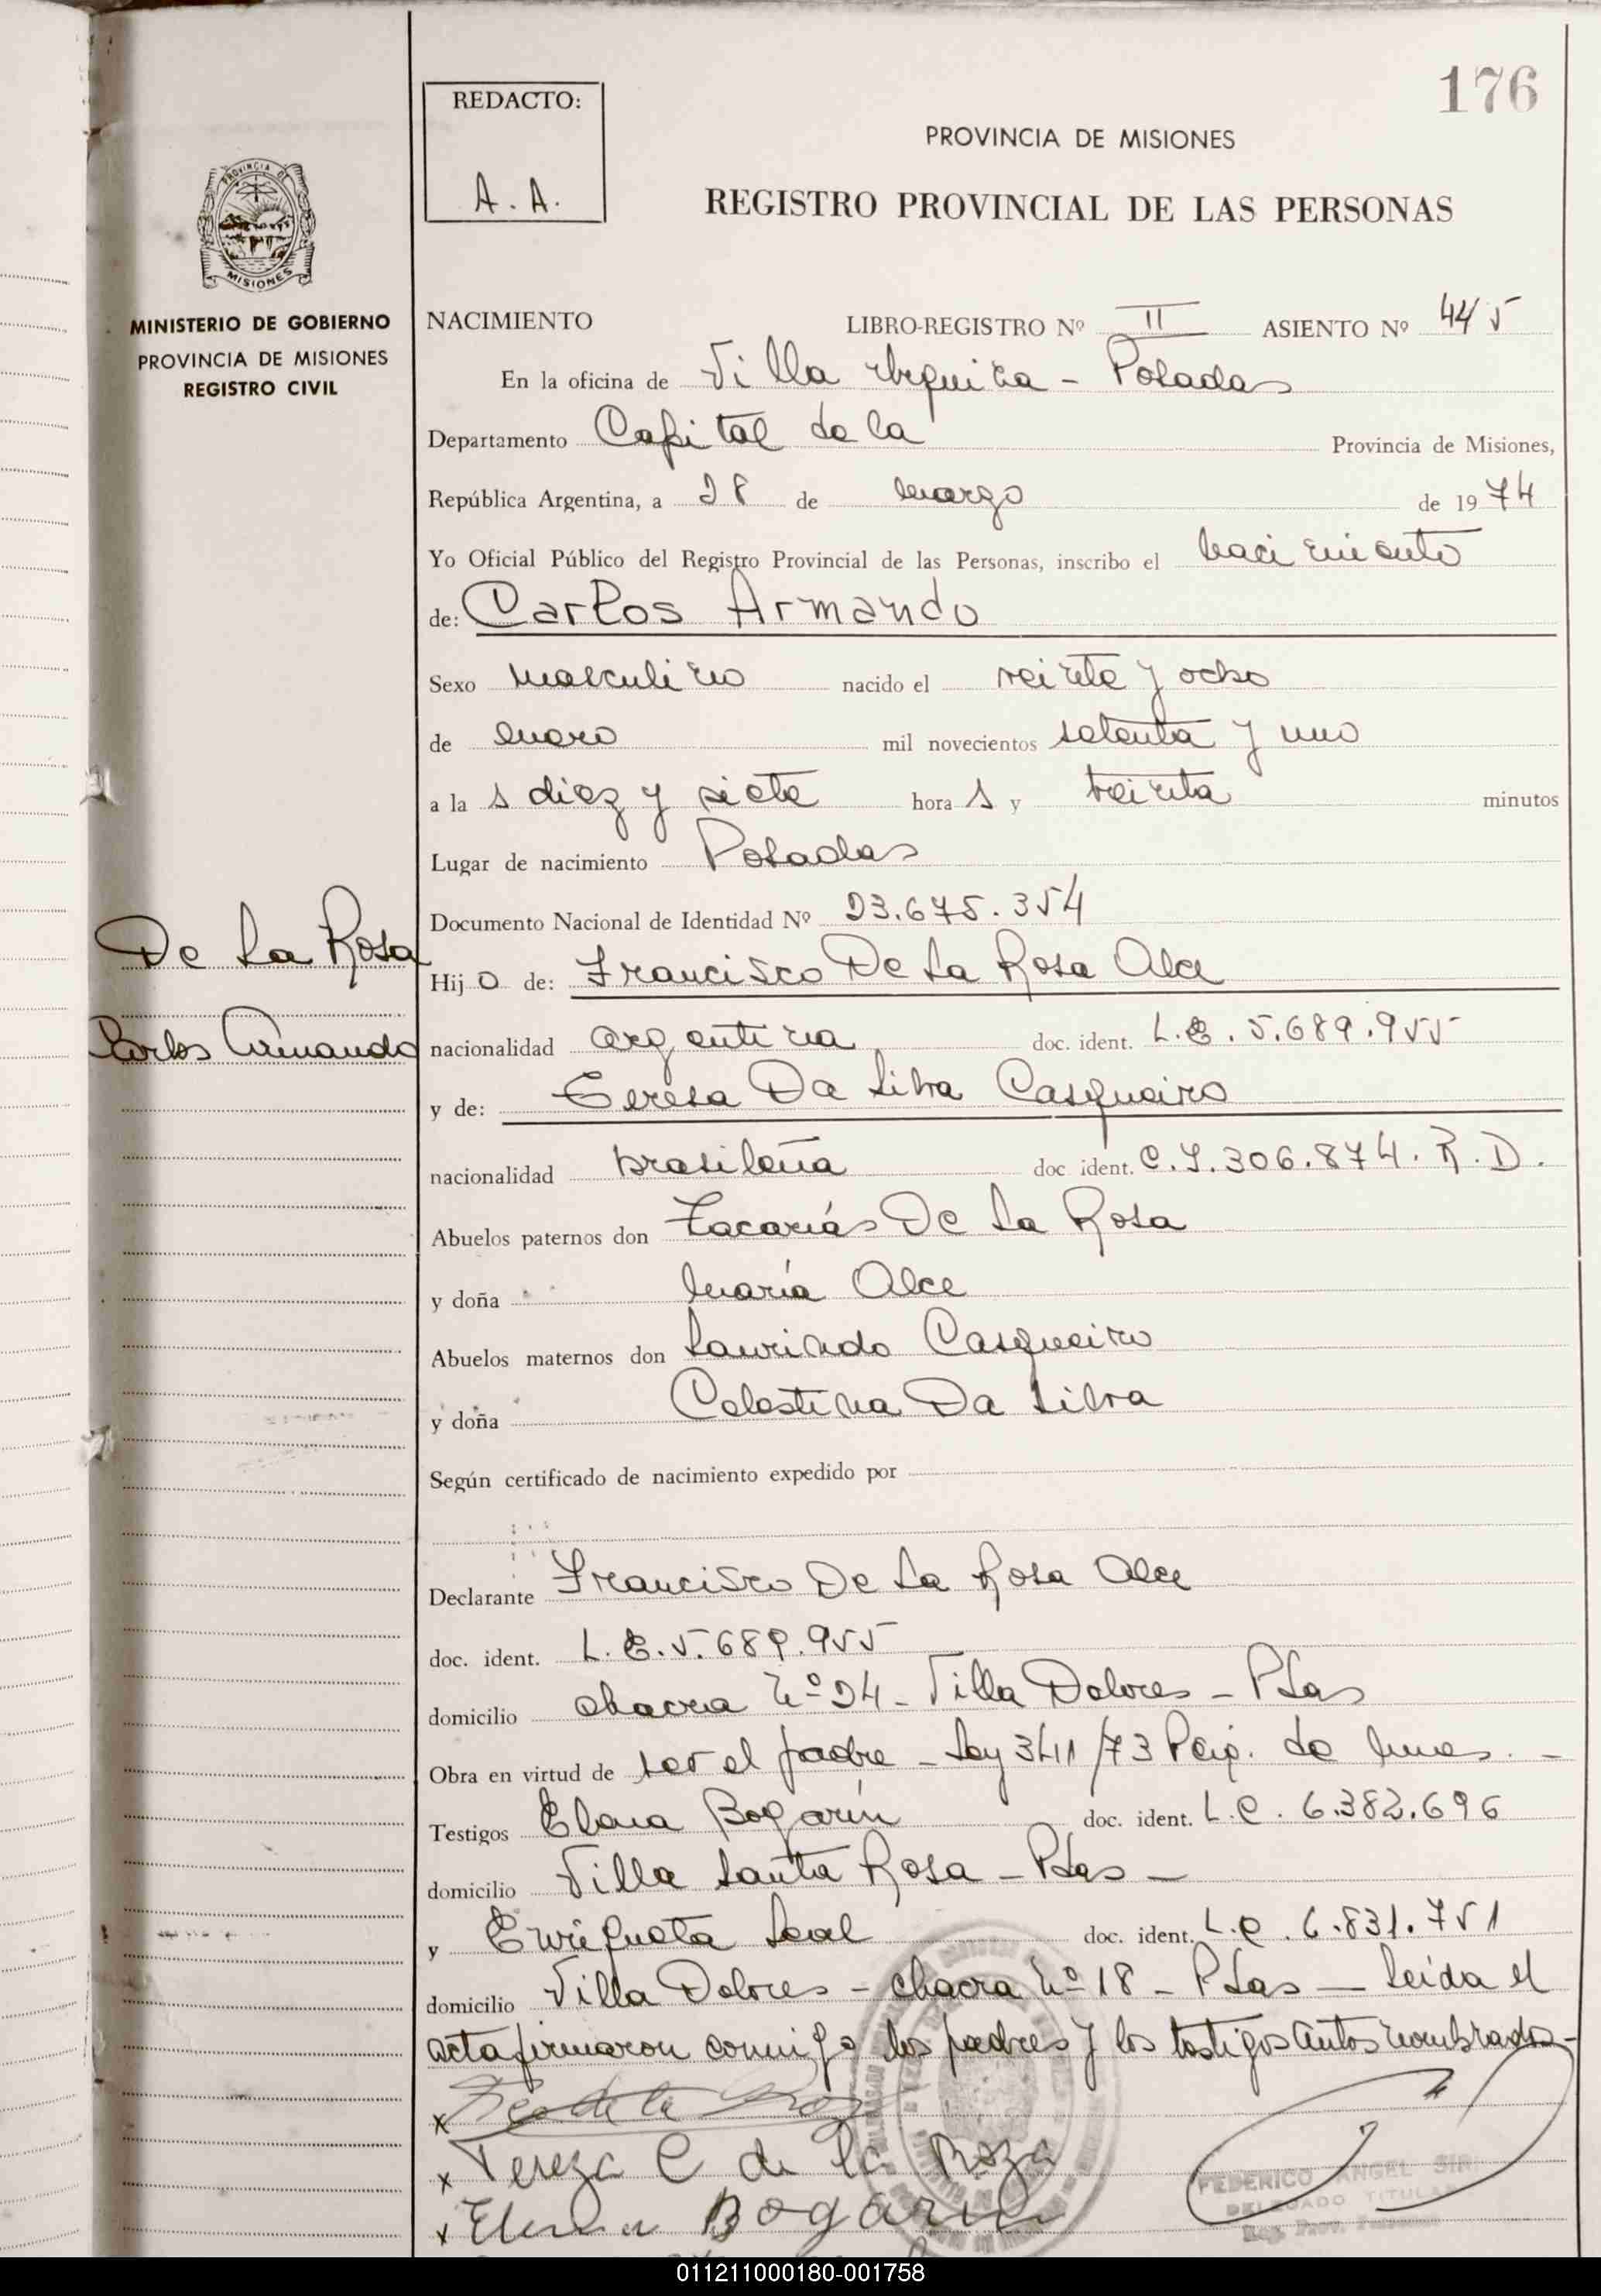 176
REDACTO:
A. A.
PROVINCIA DE MISIONES
REGISTRO PROVINCIAL DE LAS PERSONAS
PROVINCIA DE
MISIONES
MINISTERIO DE GOBIERNO
PROVINCIA DE MISIONES
REGISTRO CIVIL
NACIMIENTO LIBRO-REGISTRO Nº II ASIENTO Nº 445
En la oficina de Villa Urquiza - Posadas
Departamento Capital de la Provincia de Misiones,
República Argentina, a 28 de marzo de 1974
Yo Oficial Público del Registro Provincial de las Personas, inscribo el nacimiento
de: Carlos Armando
Sexo masculino nacido el veinte y ocho
de enero mil novecientos setenta y uno
a la s diez y siete hora s y treinta minutos
Lugar de nacimiento Posadas
Documento Nacional de Identidad Nº 23.675.354
De La Rosa
Carlos Armando
Hij o de: Francisco De La Rosa Alce
nacionalidad argentina doc. ident. L.E. 5.689.955
y de: Teresa Da Silva Casqueiro
nacionalidad brasileña doc ident. C.I. 306.874. R.D.
Abuelos paternos don Zacarías De La Rosa
y doña María Alce
Abuelos maternos don Laurindo Casqueiro
y doña Celestina Da Silva
Según certificado de nacimiento expedido por
Declarante Francisco De La Rosa Alce
doc. ident. L.E. 5.689.955
domicilio chacra nº 24 - Villa Dolores - Psas
Obra en virtud de ser el padre - Ley 3411/73 de
Testigos Elena Bogarín doc. ident. L.C. 6.382.696
domicilio Villa Santa Rosa - Psas -
y Enriqueta Leal doc. ident. L.C. 6.831.751
domicilio Villa Dolores - chacra nº 18 - Psas — Leída el
acta firmaron conmigo los padres y los testigos antes nombrados-
x Fco de la Roza
x Tereza C de la Roza
x Elena Bogarin
FEDERICO ANGEL
DELEGADO TITULAR
011211000180-001758